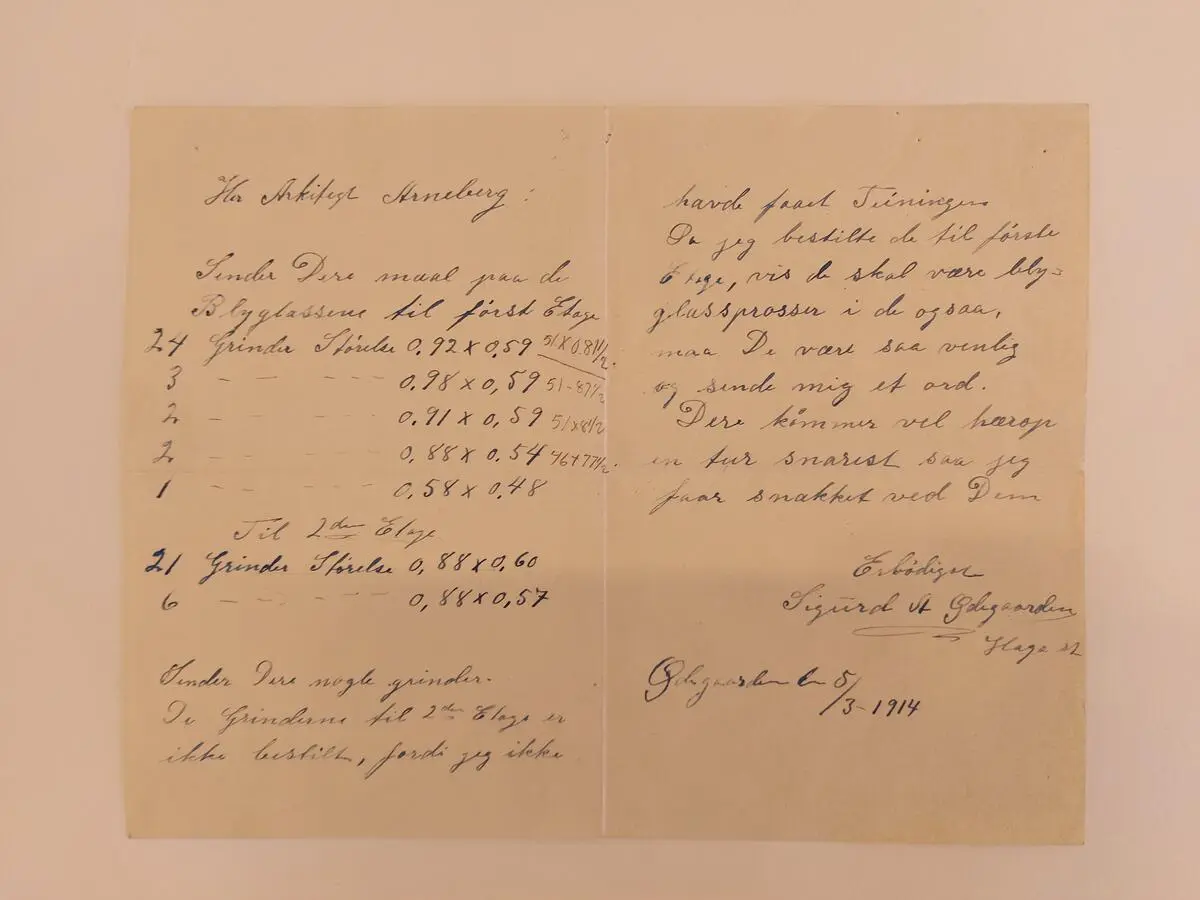 Her Arkitegt Arneberg:
Sender Dere maal paa de
Blyglassene til først Etage
24 Grinder Størelse 0.92 x 0.59 51 x 0.81 1/2.
3 - - - - - 0.98 x 0,59 51-87 1/2
2 - - - - - 0.91 x 0.59 51 x 81/2
2 - - - - - 0.88 x 0.54 46+77 1/2.
1 - - - - - 0.58 x 0.48
Til 2den Etage
21 Grinder Størelse 0,88 x 0,60
6 - - - - - 0,88 x 0,57
Sender Dere nogle grinder.
De Grinderne til 2den Etage er
ikke bestilt, fordi jeg ikke
havde faaet Teiningen
Da jeg bestilte de til første
Etage, vis de skal være bly=
glassprosser i de ogsaa,
maa De være saa venlig
og sende mig et ord.
Dere kommer vel hærop
en tur snarest saa jeg
faar snakket ved Dem
Erbødigst
Sigurd St Ødegaarden
Haga st
Ødegaarden den 5/3-1914